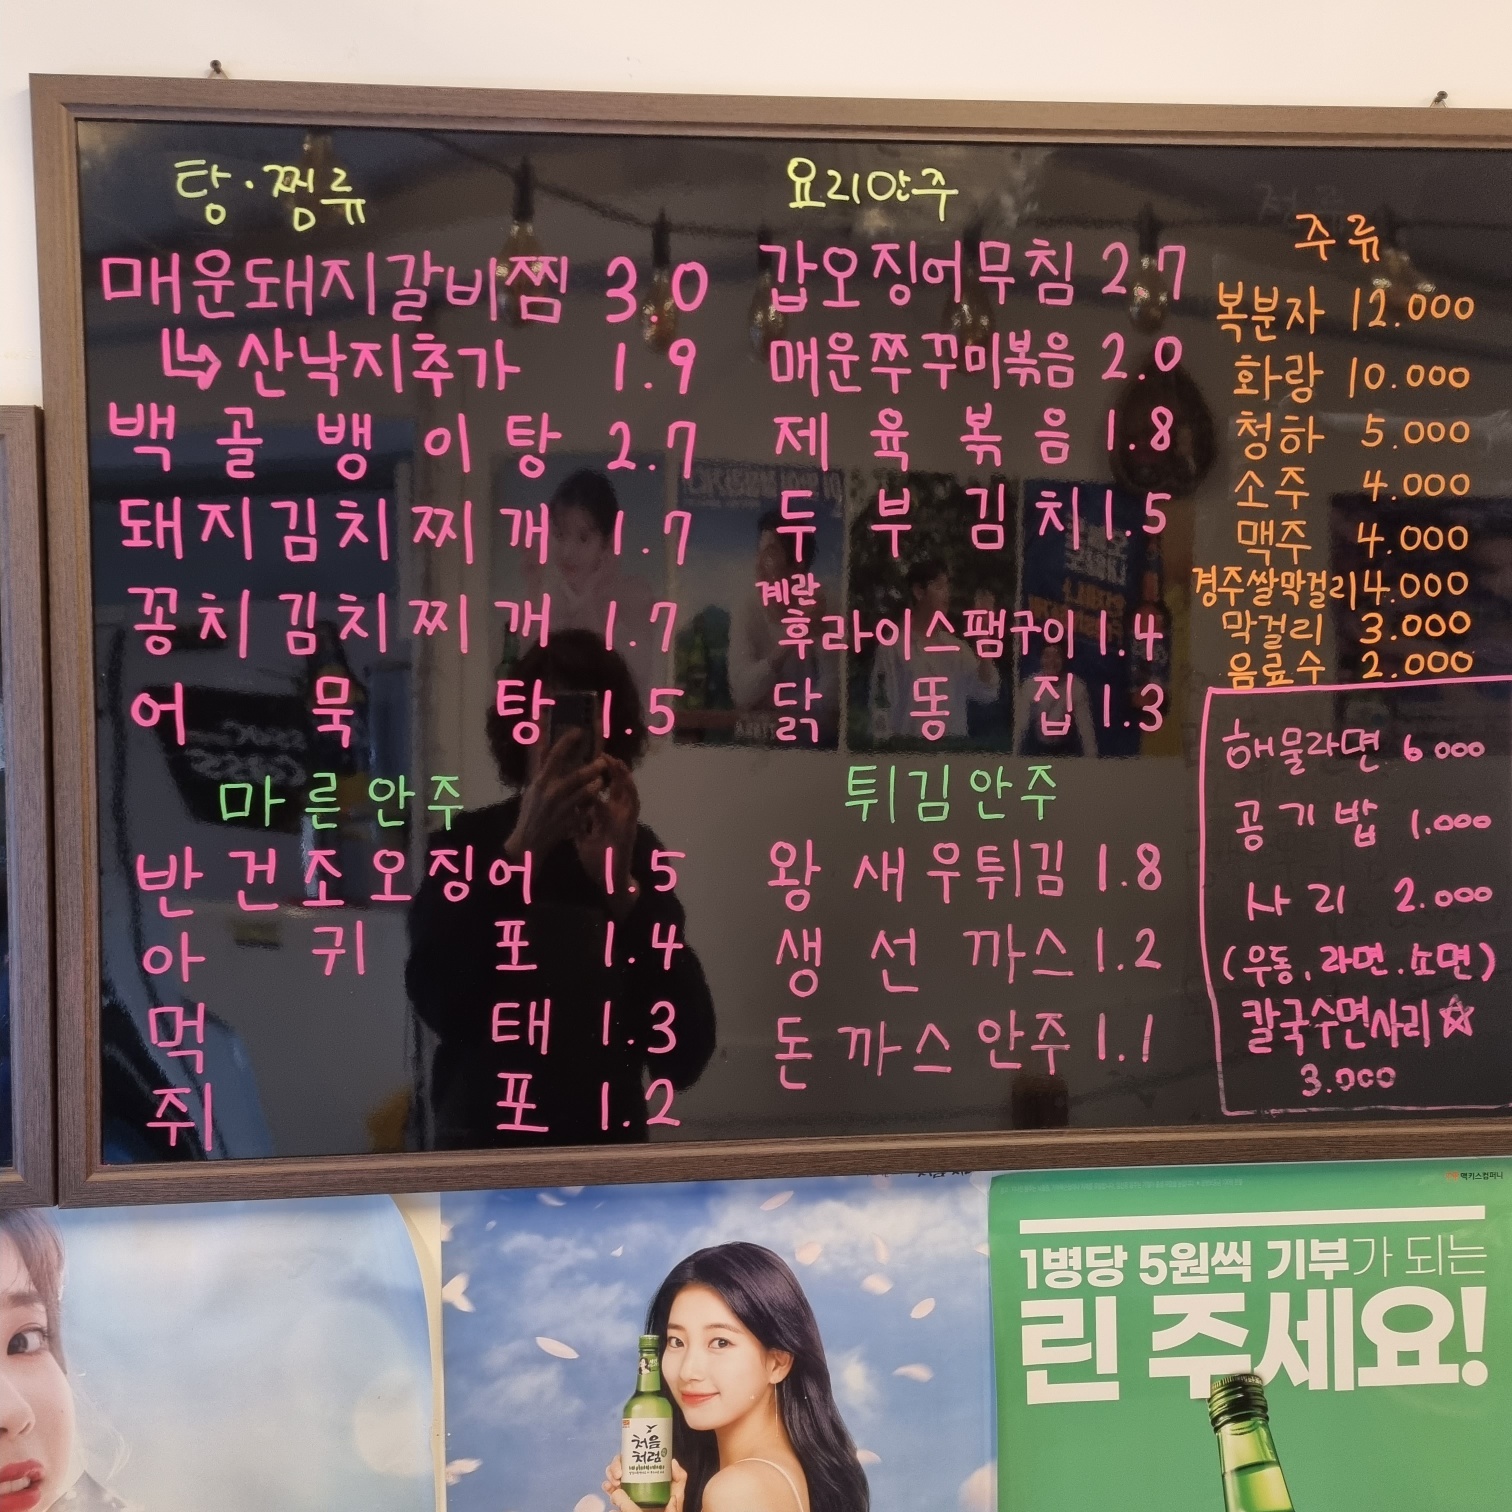 탕·찜류
매운돼지갈비찜 3.0
↳산낙지추가 1.9
백골뱅이탕 2.7
돼지김치찌개 1.7
꽁치김치찌개 1.7
어묵탕 1.5
마른안주
반건조오징어 1.5
아귀포 1.4
먹태 1.3
쥐포 1.2
요리안주
갑오징어무침 2.7
매운쭈꾸미볶음 2.0
제육볶음 1.8
두부김치 1.5
계란
후라이스팸구이 1.4
닭똥집 1.3
튀김안주
왕새우튀김 1.8
생선까스 1.2
돈까스안주 1.1
주류
복분자 12.000
화랑 10.000
청하 5.000
소주 4.000
맥주 4.000
경주쌀막걸리 4.000
막걸리 3.000
음료수 2.000
해물라면 6000
공기밥 1.000
사리 2.000
(우동, 라면.소면)
칼국수면사리☆
3.000
처음
처럼
맥키스컴퍼니
1병당 5원씩 기부가 되는
린 주세요!